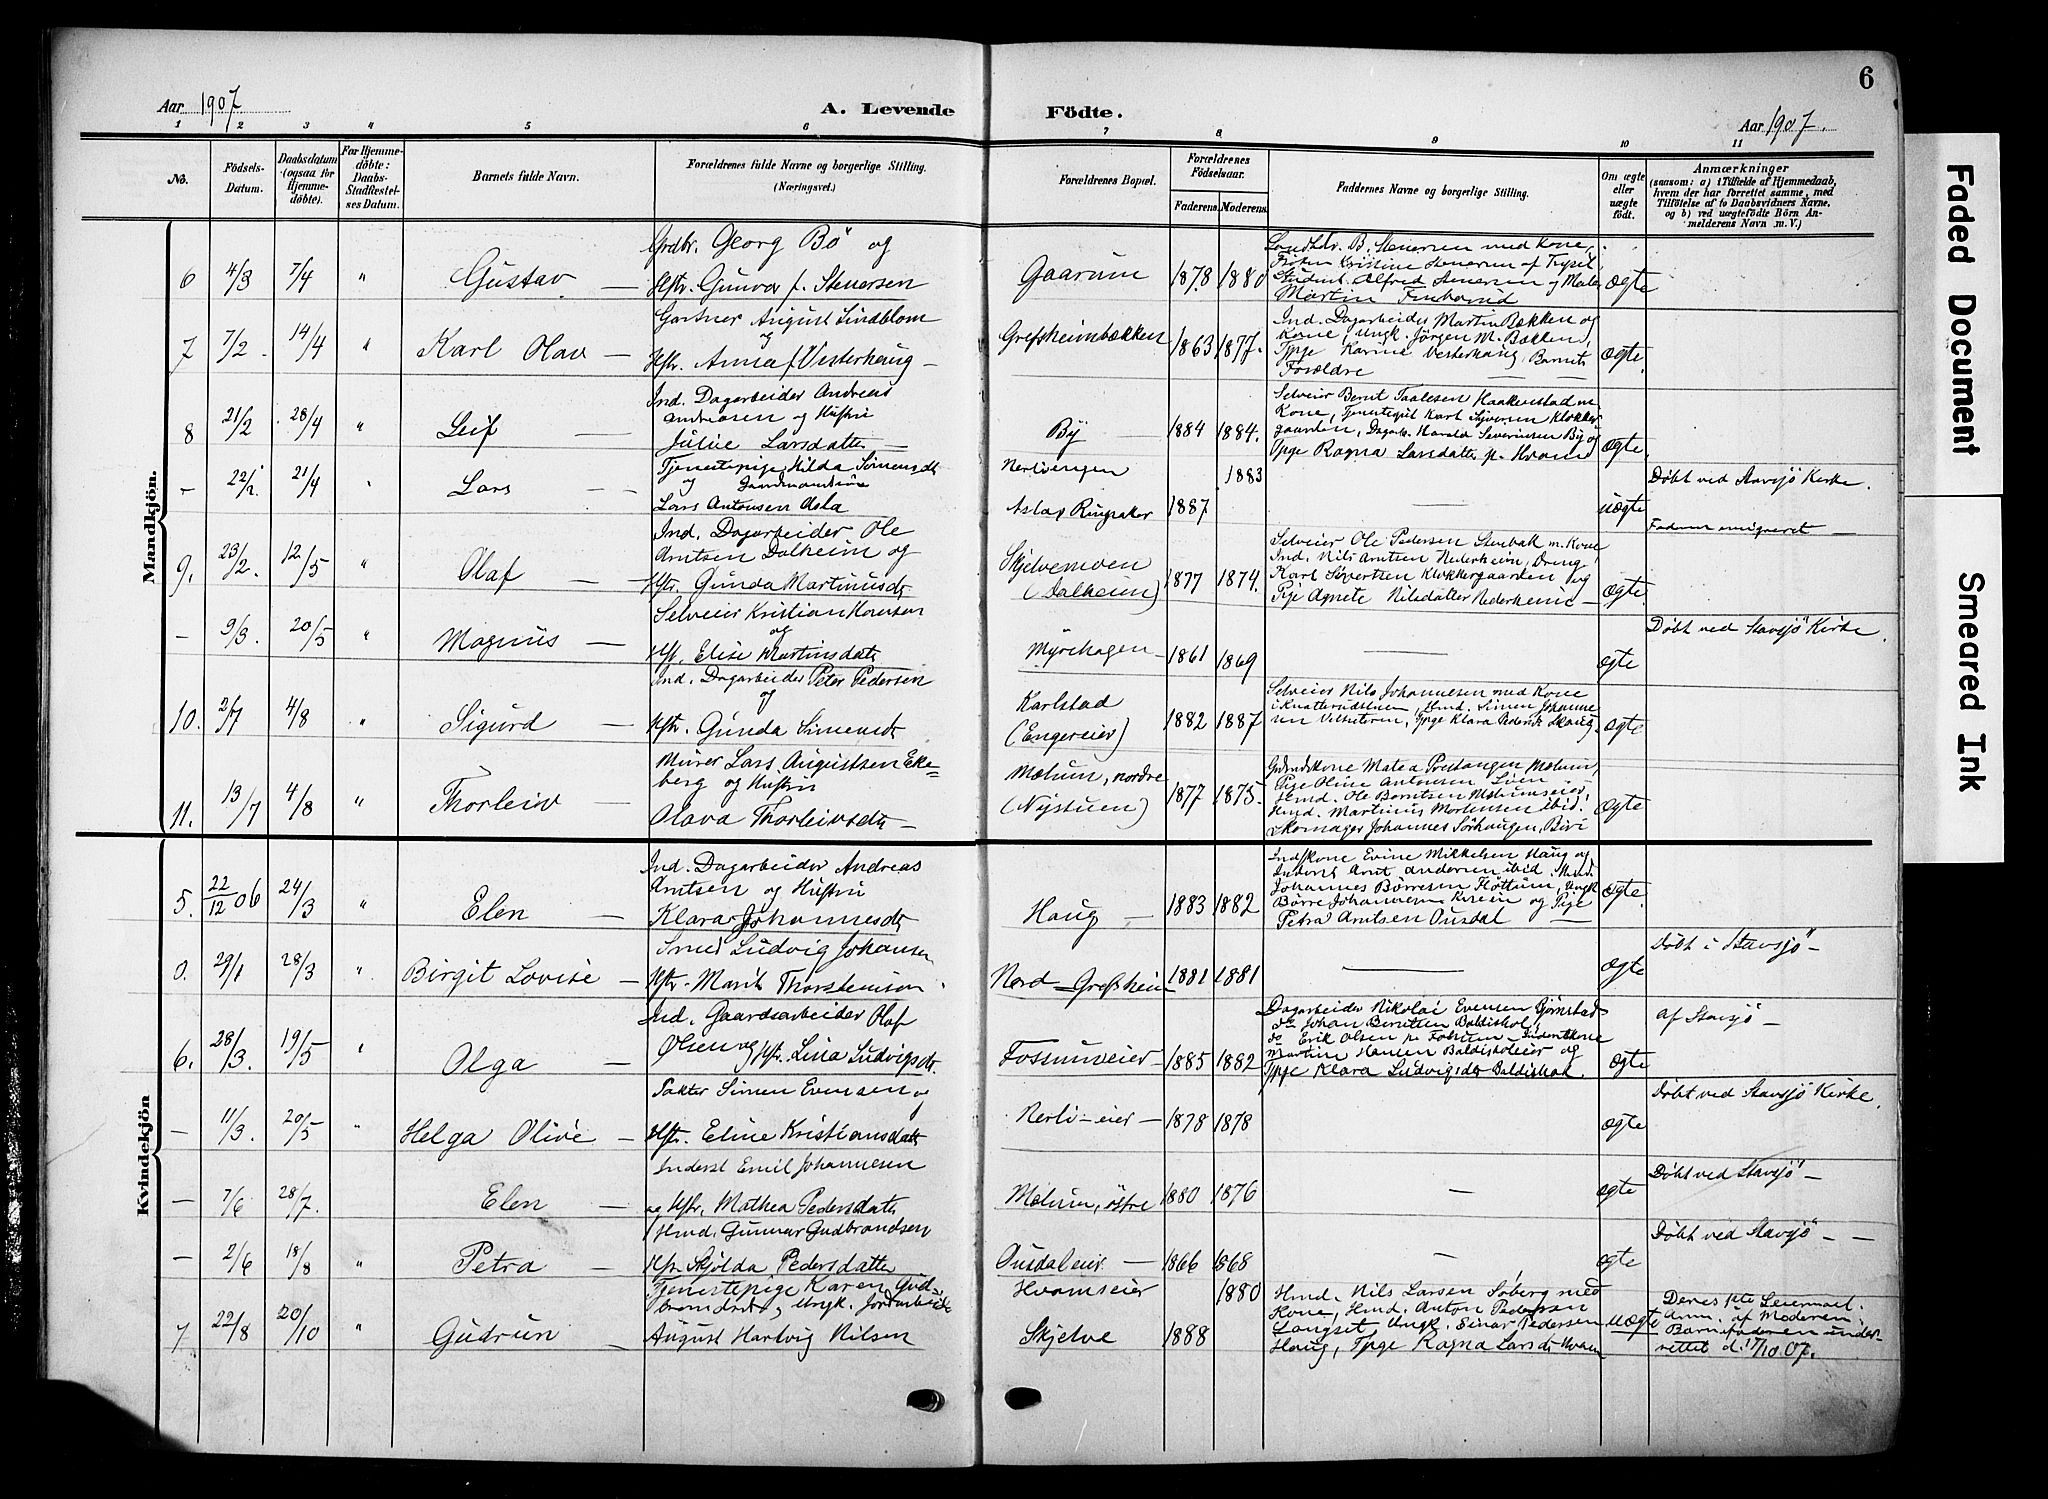 6
Aar 1907
A. Levende
Födte.
Aar 1907.
1 2 3 4 5 6 7 8 9 10 11
No.
Födsels-
Datum.
Daabsdatum
(ogsaa for
Hjemme-
döbte).
For Hjemme-
döbte:
Daabs-
Stadfæstel-
ses Datum.
Barnets fulde Navn.
Forældrenes fulde Navne og borgerlige Stilling.
(Næringsvei.)
Forældrenes Bopæl.
Forældrenes
Födselsaar.
Faderens. Moderens.
Faddernes Navne og borgerlige Stilling.
Om ægte
eller
uægte
födt.
Anmærkninger
(saasom: a) i Tilfælde af Hjemmedaab,
hvem der har forrettet samme, med
Tilföielse af to Daabsvidners Navne,
og b) ved uægtefödte Börn An-
melderens Navn m. V.)
Mandkjön.
6 4/3 7/4 " Gustav —
Grdbr. Georg Bö og
Hstr. Gunvor f. Stenersen
Gaarum 1878 1880
B. Stenersen med Kone,
Fröken Kristine Stenersen af Trysil,
Student Alfred Stenersen og Maler
Martin
ægte
7 7/2 14/4 " Karl Olav —
Gartner August Lindblom
og
Hstr. Anna f Vesterhaug —
Grefsheimbækken 1863 1877.
Ind. Dagarbeider Martin Bækken og
Kone, Ungk. Jörgen M. Bækken,
Tpge Karine Vesterhaug, Barnets
Forældre
ægte.
8 21/2 28/4 " Leif —
Ind. Dagarbeider Andreas
Andreasen og Hustru
Julie Larsdatter —
By — 1884 1884.
Selveier Bernt Haakenstad m.
Kone, Tjenestegut Karl Syversen Klokker
gaarden, Dagarb. Harald Severinsen By og
Tpge Ragna Larsdatter p. Kvame
ægte.
- 22/1 21/4 " Lars —
Tjenestepige Hilda Simensdt
og
Lars Antonsen Asla
Nerlivengen 1883
Ringsaker 1887
—
uægte
Döbt ved Stavsjö Kirke.
Faderen emigreret —
9. 23/2. 12/5 " Olaf —
Ind. Dagarbeider Ole
Arntsen Dalheim og
Hstr. Gunda Martinusdt
Skjelvemoen
(Dalheim) 1877 1874.
Selveier Ole Pedersen Stenbak m. Kone
Ind. Nils Arntsen Nederheim, Dreng
Karl Sivertsen Klokkergaarden og
Pige Agnete Nilsdatter Nederheim —
ægte.
- 9/3. 20/5 " Magnus —
Selveier Kristian Hansen
og
Hst. Elise Martinsdatt
Myrehagen — 1861 1869
—
ægte
Döbt ved Stavsjö Kirke.
10. 2/7 4/8 " Sigurd —
Ind. Dagarbeider Peter Pedersen
og
Hstr. Gunda Simensdt
Karlstad
(Engereier) 1882 1887
Selveier Nils Johannesen med Kone
ægte
11. 13/7 4/8 " Thorleiv —
Murer Lars Augustsen Eke=
berg og Hustru
Olava Thorleivsdt —
Mælum, nordre
(Nystuen) 1877 1875.
Matea Mælum,
Pige Oline Antonsen
Hmd. Ole Berntsen Mælumseier,
Hmd. Martinus Mortensen ibid.
Skomager Johannes Sörhaugen, Biri
ægte
Kvindekjön
5. 22/12 06 24/3 " Elen —
Ind. Dagarbeider Andreas
Arntsen og Hustru
Klara Johannesdt
Haug — 1883 1882
Indskone Evine Mikkelsen Haug og
Inderst Arnt Andersen ibid. Hmd.
Johannes Börresen Flöttum, Ungk
Börre Johannesen og Pige
Petra Arntsen Ousdal —
ægte.
0. 29/1 28/3 " Birgit Lovise —
Smed Ludvig Johansen
Hstr. Marit Thorstenson
Nord-Grefsheim 1881 1881
—
ægte
Döbt i Stavsjö —
6. 28/3. 19/5 " Olga —
Ind. Gaardsarbeider Olaf
Olsen og Hst. Lina Ludvigsdt.
Fossumseier — 1885 1882
Dagarbeider Nikolai Evensen Björnstad
do Johan Berntsen Baldishol,
do Erik Olsen
Martine Hansen Baldisholeier og
Tpge Klara Ludvigsdt Baldishol.
ægte
af Stavsjö —
- 11/3. 20/5 " Helga Olive —
Pakter Simen Evensen og
Hstr. Eline Kristiansdatt
Nerli-eier — 1878 1878
ægte
Döbt ved Stavsjö Kirke.
- 7/6 28/7. Elen —
Inderst Emil Johannesen
og Hstr. Mathea Pedersdatt
Mælum, östre 1880 1876
—
ægte
Döbt ved Stavsjö —
- 2/6 18/8 " Petra —
Hmd. Gunnar Gudbrandsen
Hstr. Skjölda Pedersdatter
Ousdaleier — 1866 1868
—
ægte
Döbt ved Stavsjö — —
7 22/8 20/10 " Gudrun —
Tjenestepige Karen Gud-
brandsdt, Ungk. Jordarbeider
August Hartvig Nilsen
Hvamseier 1880
Skjelve 1888
Hmd. Nils Larsen Söberg med
Kone, Hmd. Anton Pedersen
Langset, Ungk. Einar Pedersen
Haug, Tpge Ragna Larsdt Kvam
uægte
Deres 1ste Leiermaal.
Anm. af Moderen.
Barnefaderen under-
rettet d. 17/10 07.
Faded Document
Smeared Ink